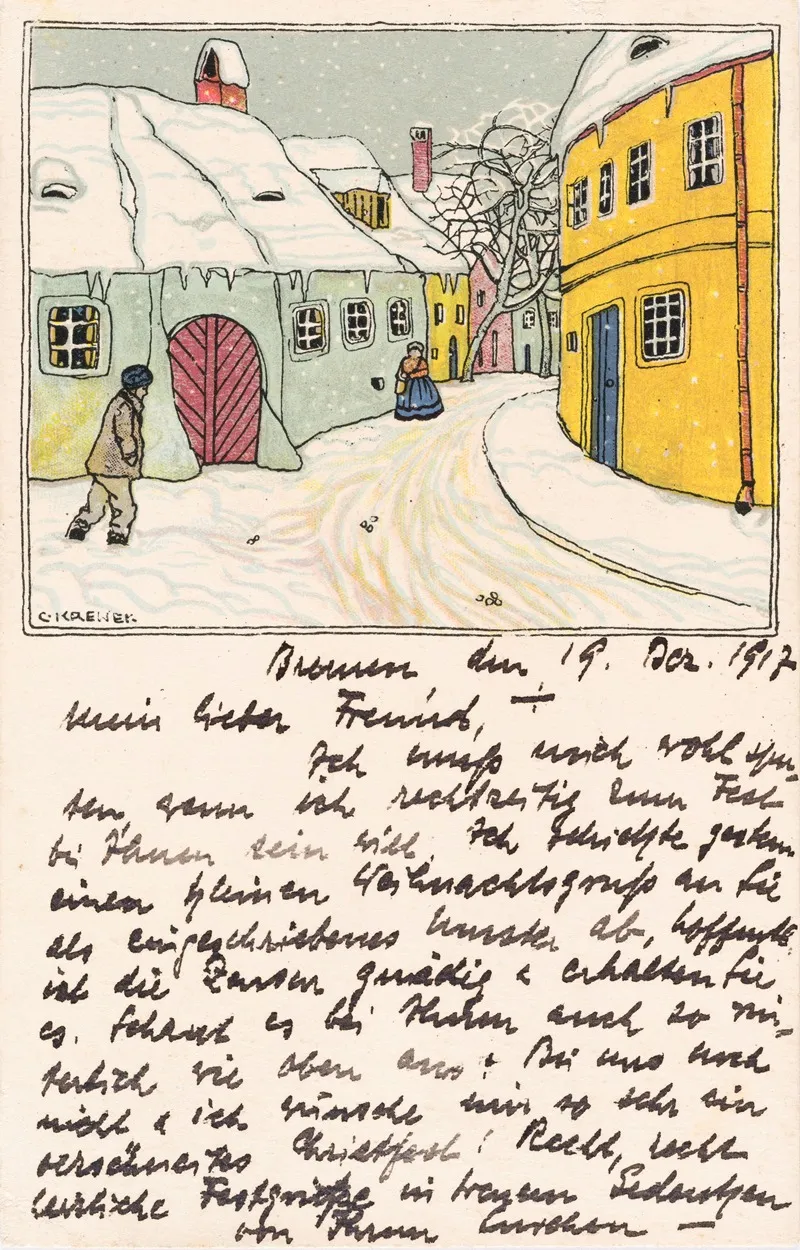 C. KRENEK
Bremen, den 19. Dez. 1917
Mein lieber Freund,
Ich muß mich wohl spu-
ten, wenn ich rechtzeitig zum Fest
bei Ihnen sein will. Ich schickte gestern
einen kleinen Weihnachtsgruß an Sie
als eingeschriebenes Muster ab, hoffent-
ist die Zensur gnädig & erhalten Sie
es. Schaut es bei Ihnen auch so win-
terlich wie oben aus? Bei uns noch
nicht & ich wünsche mir so sehr ein
verschneites Christfest! Recht, recht
herzliche Festgrüße in treuem Gedenken
von Ihrem